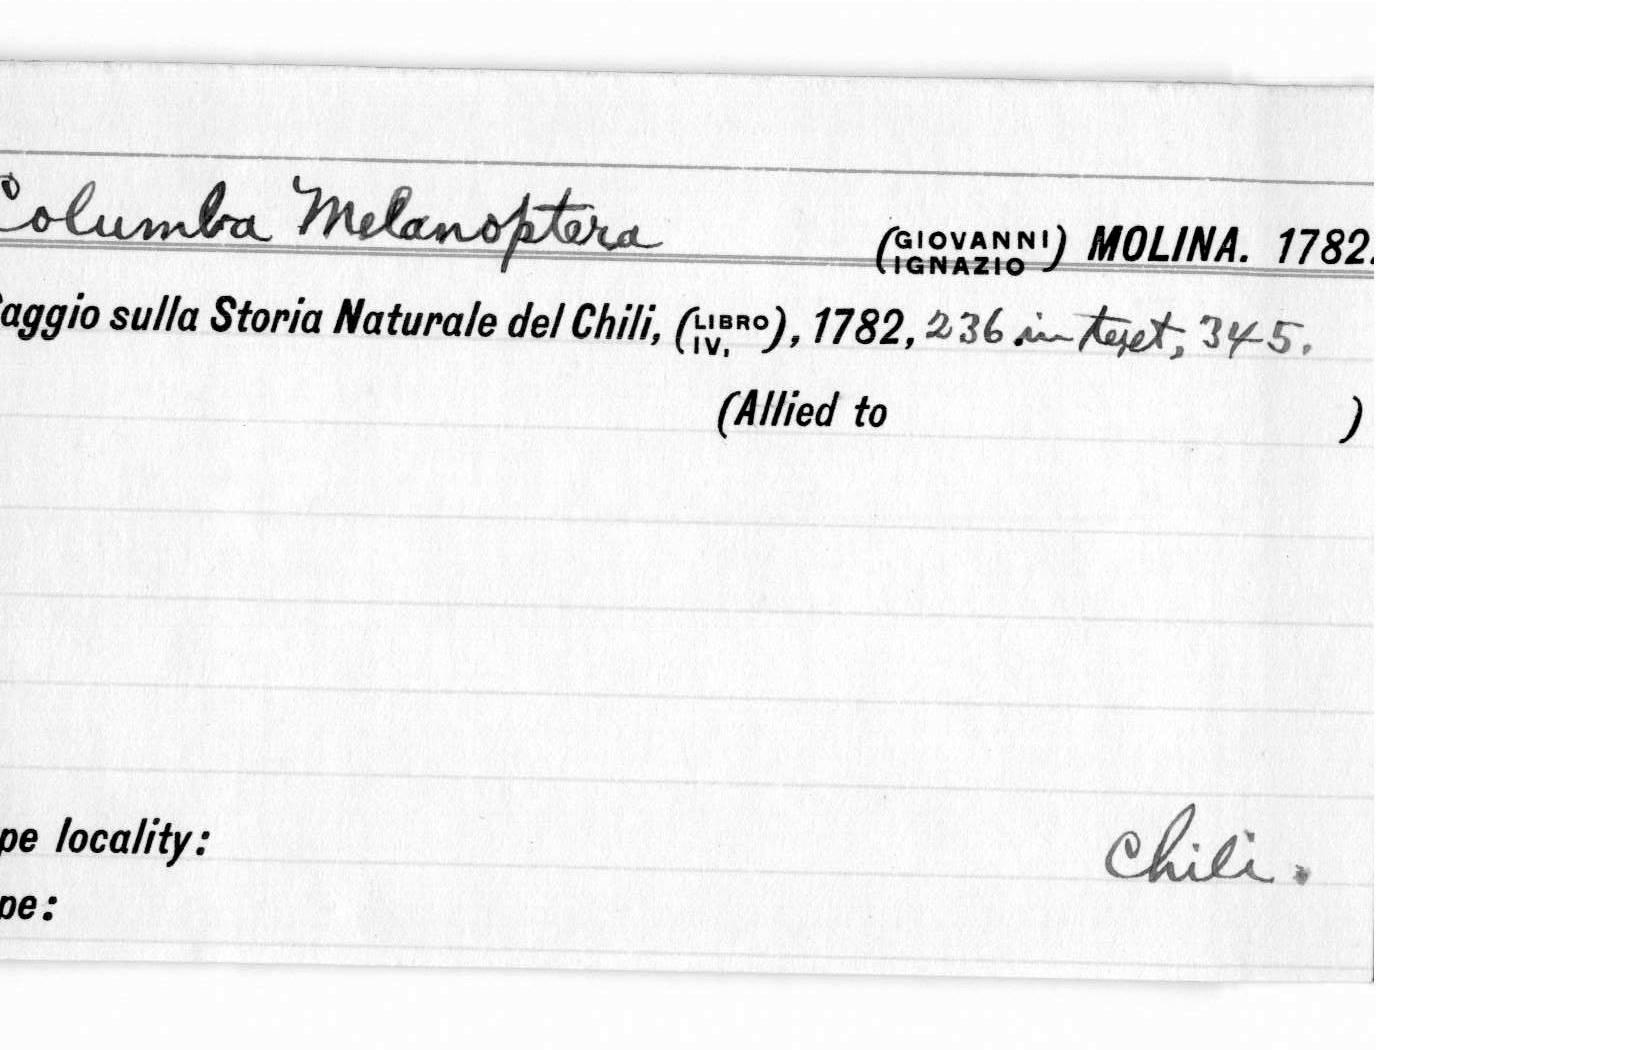 Columba Melanoptera (GIOVANNI IGNAZIO) MOLINA. 1782.
aggio sulla Storia Naturale del Chili, (LIBRO IV,), 1782, 236 in text, 345.
(Allied to )
pe locality: Chili.
pe: